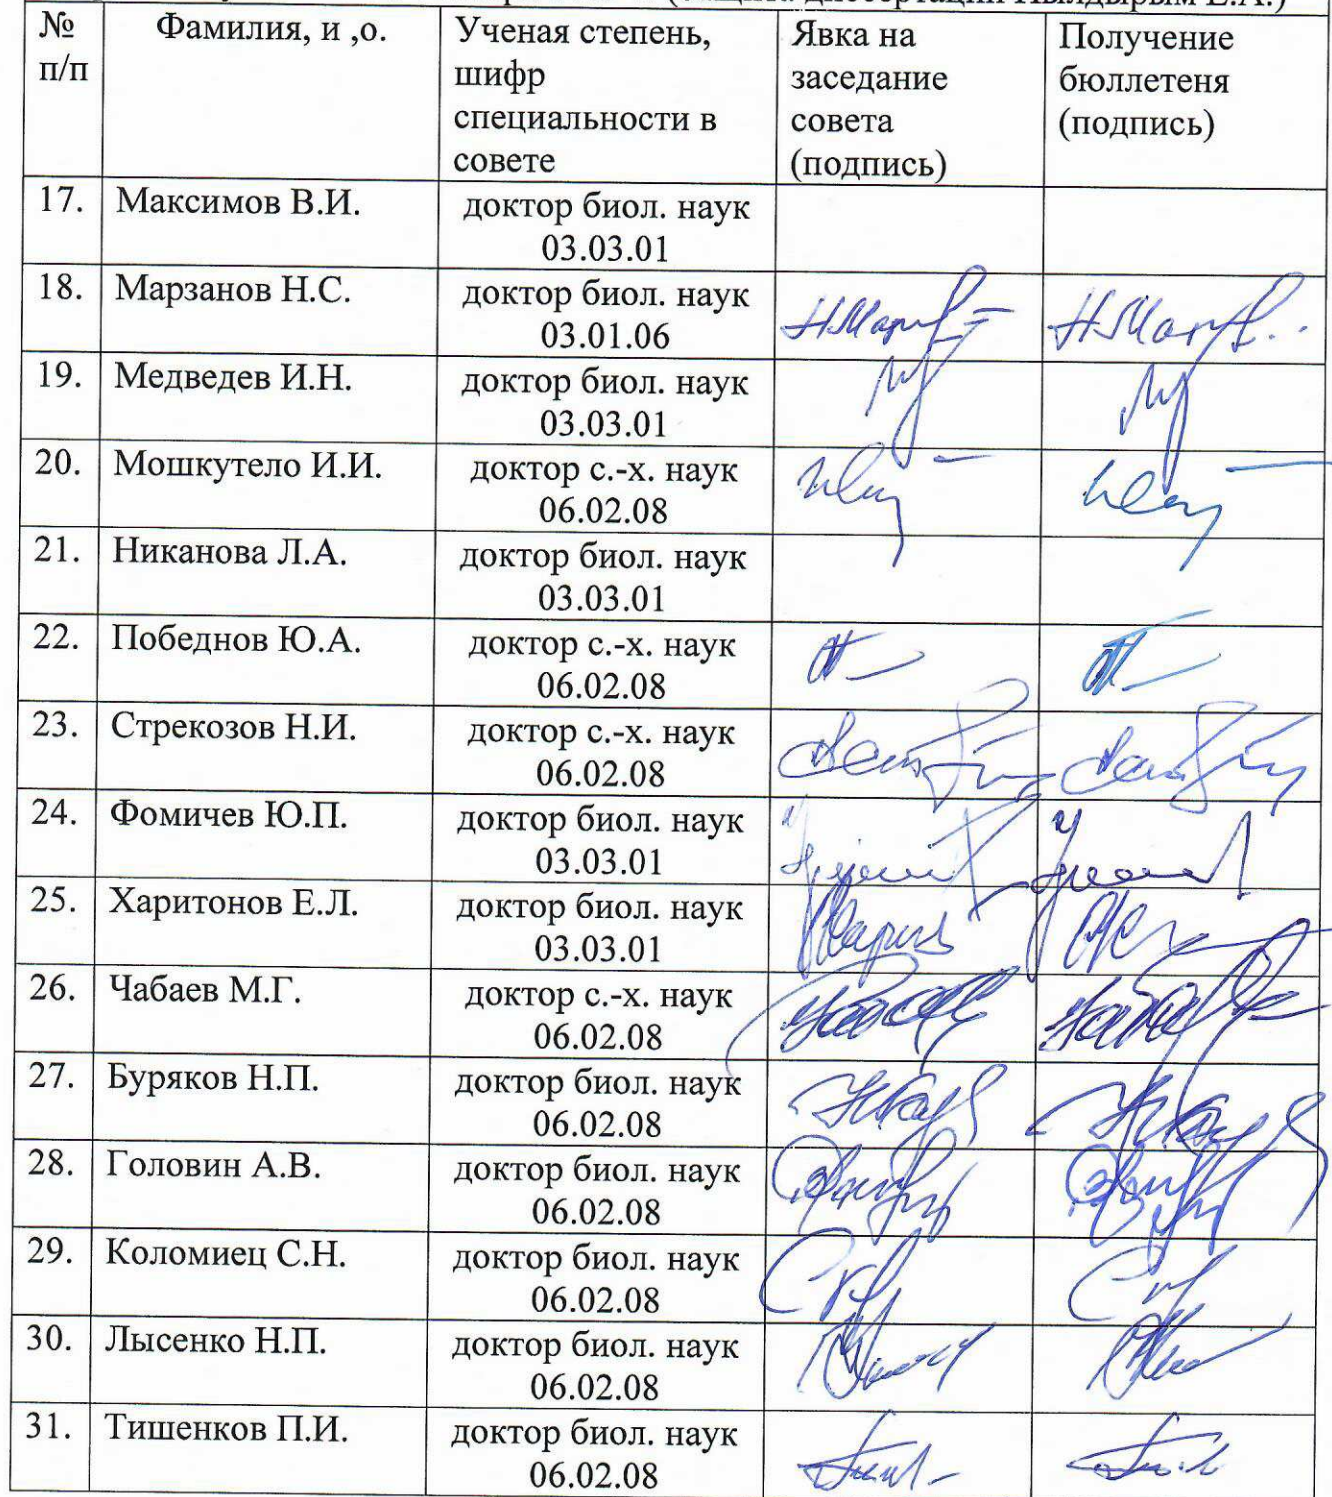 (защита диссертации Йылдырым Е.А.)
№ п/п Фамилия, и ,о. Ученая степень, шифр специальности в совете Явка на заседание совета (подпись) Получение бюллетеня (подпись)
17. Максимов В.И. доктор биол. наук
03.03.01
18. Марзанов Н.С. доктор биол. наук
03.01.06
19. Медведев И.Н. доктор биол. наук
03.03.01
20. Мошкутело И.И. доктор с.-х. наук
06.02.08
21. Никанова Л.А. доктор биол. наук
03.03.01
22. Победнов Ю.А. доктор с.-х. наук
06.02.08
23. Стрекозов Н.И. доктор с.-х. наук
06.02.08
24. Фомичев Ю.П. доктор биол. наук
03.03.01
25. Харитонов Е.Л. доктор биол. наук
03.03.01
26. Чабаев М.Г. доктор с.-х. наук
06.02.08
27. Буряков Н.П. доктор биол. наук
06.02.08
28. Головин А.В. доктор биол. наук
06.02.08
29. Коломиец С.Н. доктор биол. наук
06.02.08
30. Лысенко Н.П. доктор биол. наук
06.02.08
31. Тишенков П.И. доктор биол. наук
06.02.08